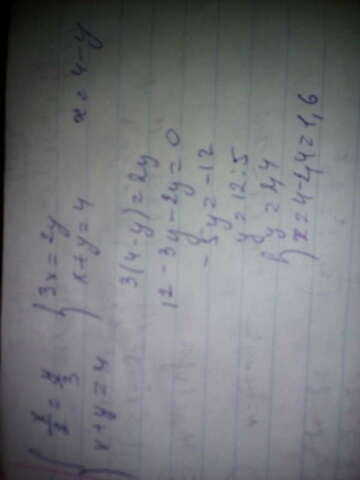 { x/2 = y/3 { 3x = 2y x = 4 - y
x + y = 4 x + y = 4
3(4 - y) = 2y
12 - 3y - 2y = 0
-5y = -12
y = 12:5
{ y = 2,4
x = 4 - 2,4 = 1,6